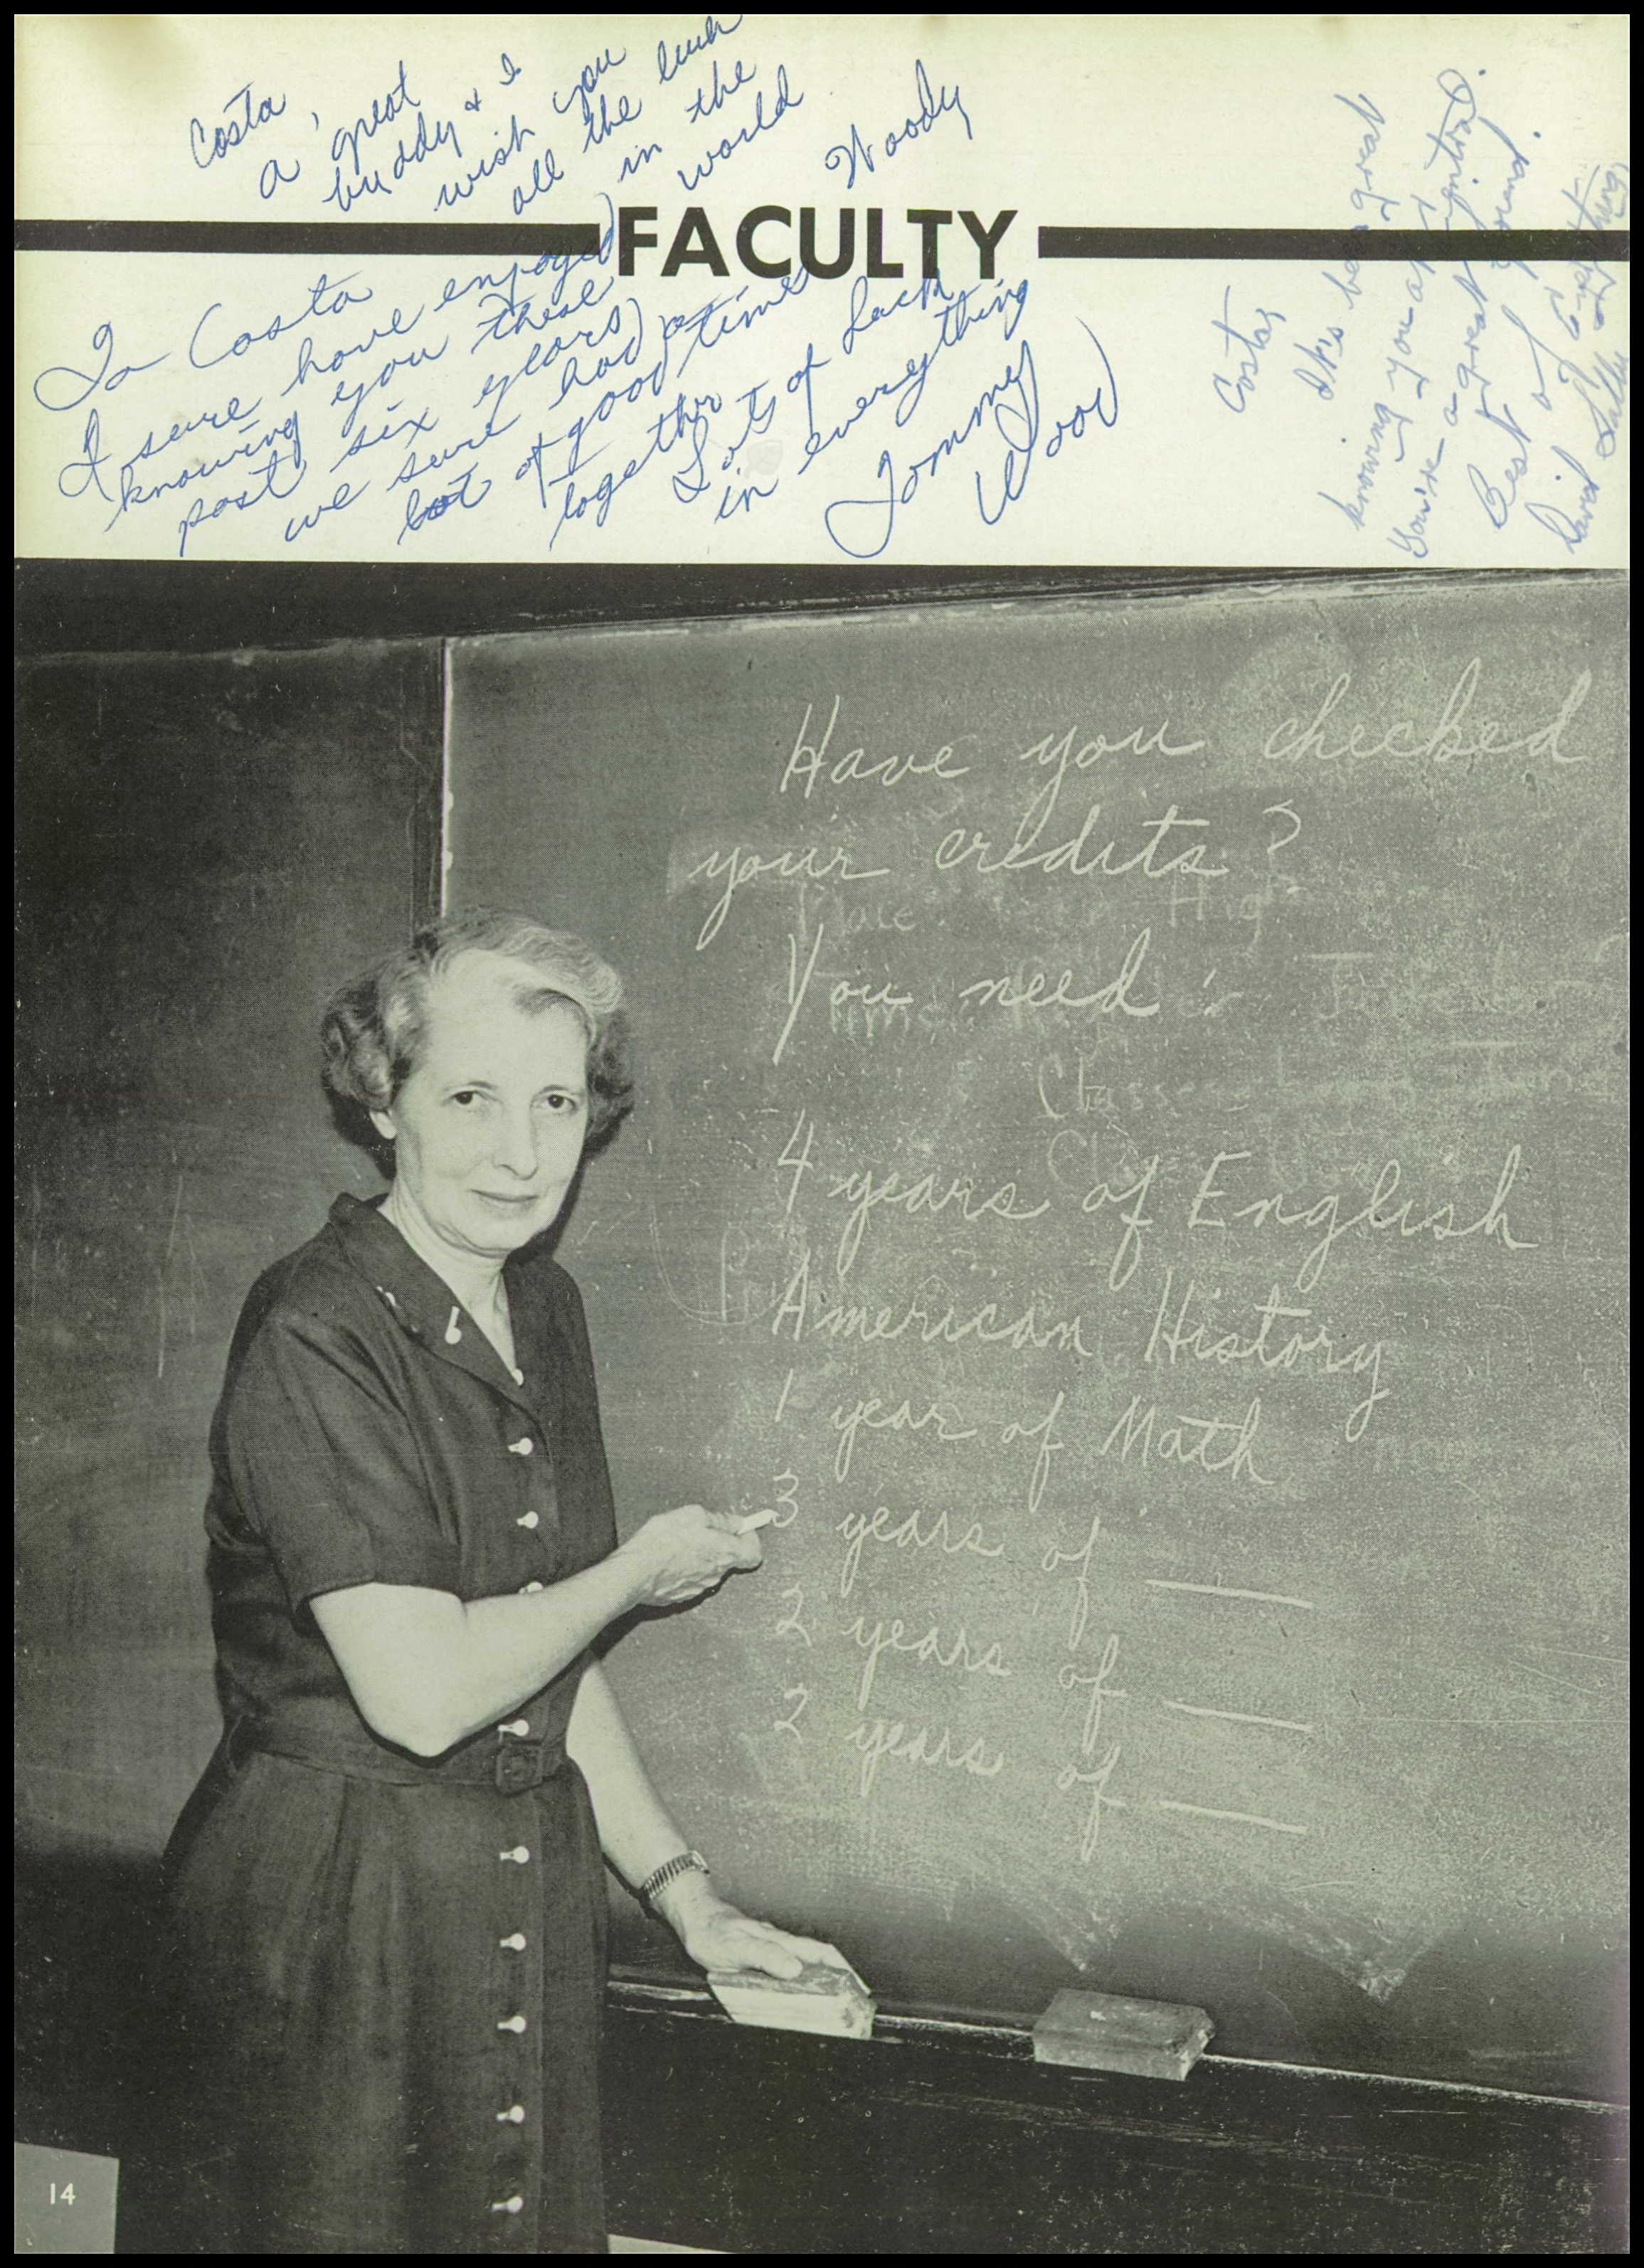 Costa,
a great
buddy & I
wish you
all the luck
in the
world
Woody
FACULTY
To Costa
I sure have enjoyed
knowing you these
past six years,
we sure had a
lot of good times
together
Lots of Luck
in everything
Tommy
Wood
Costa,
It's been great
knowing you at
You're a great
Best of
David
Have you checked
your credits?
You need:
4 years of English
American History
1 year of Math
3 years of ___
2 years of ___
2 years of ___
14